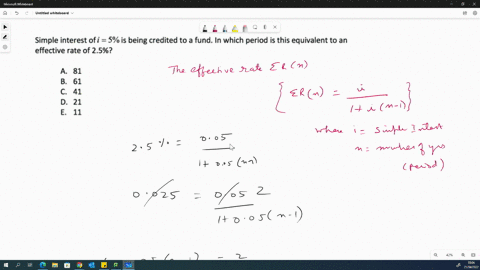 Untitled whiteboard
Simple interest of i = 5% is being credited to a fund. In which period is this equivalent to an
effective rate of 2.5%?
A. 81
B. 61
C. 41
D. 21
E. 11
The effective rate ER(n)
{ ER(n) = i / 1 + i(n-1) }
where i = Simple
n = number of
(period)
2.5 % = 0.05 / 1 +
0.025 = 0.05 2 / 1 + 0.05 (n-1)